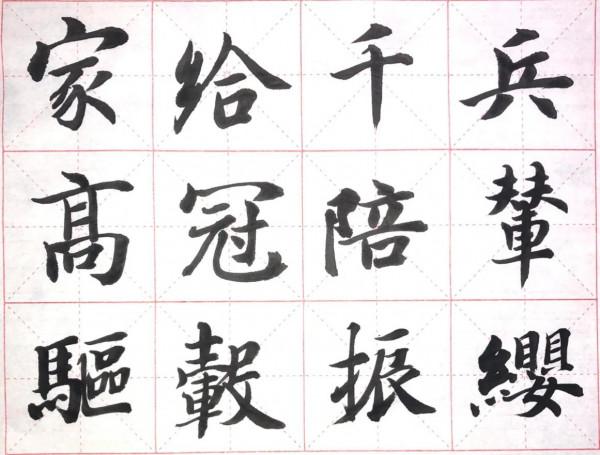 家給千兵
髙冠陪輦
驅轂振纓